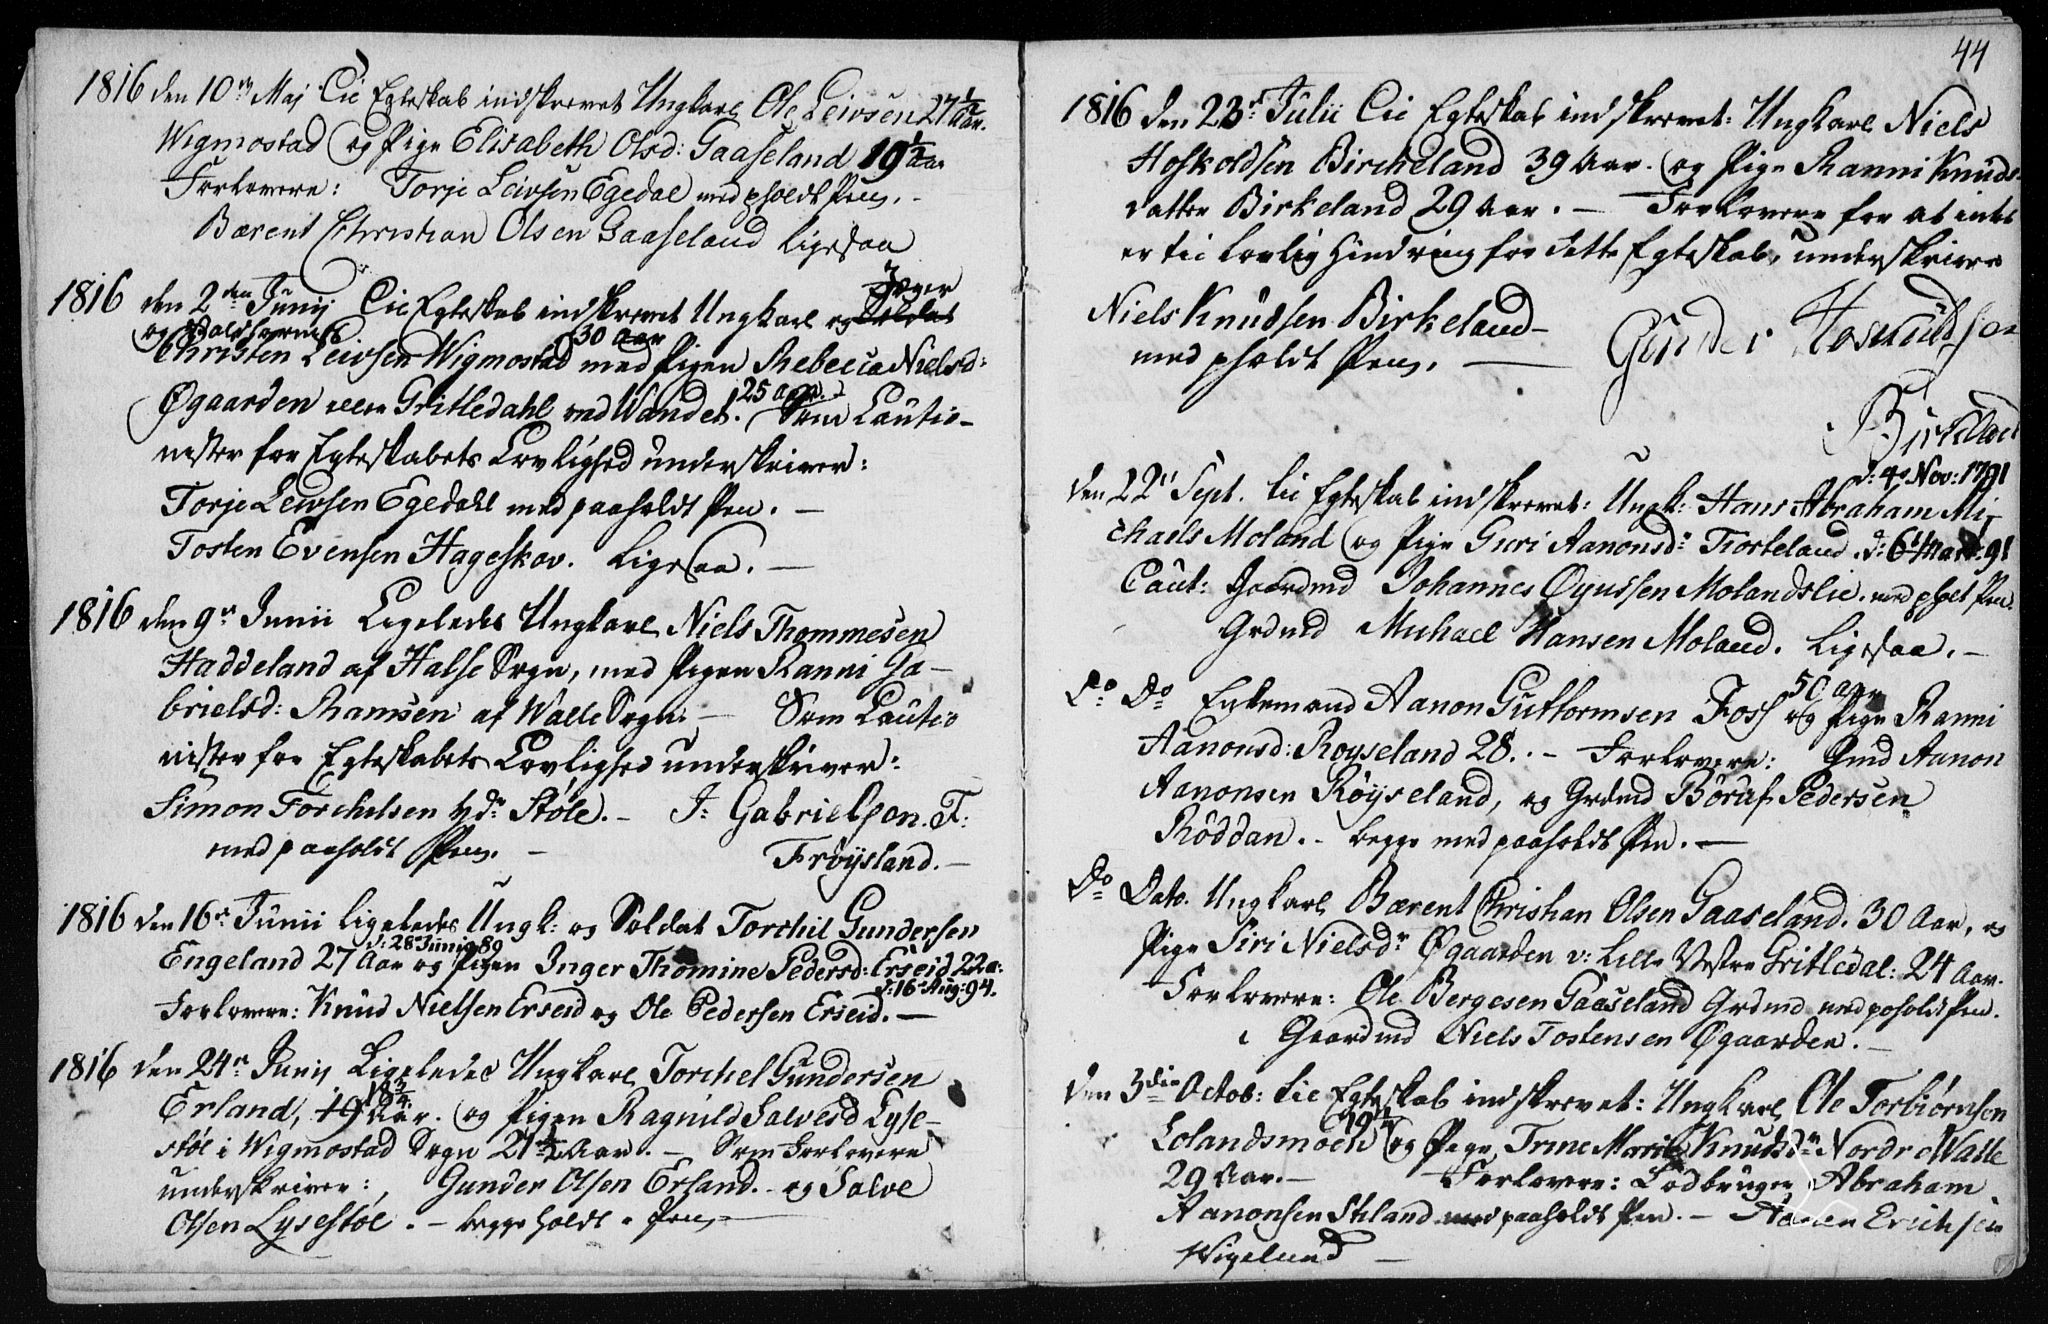 1816 den 10de Maj Til Egteskab indskrevet Ungkarl Ole Leivsen 27 1/2 Aar.
Wigmostad og Pige Elisabeth Olsd: Gaaseland 19 1/2 Aar
Forlovere: Torje Leivsen Egedal med pholdt Pen. -
Bærent Christian Olsen Gaaseland ligesaa
1816 den 2den Junij Til Egteskab indskrevet Ungkarl og Soldat Jæger
og
Christen Leivsen Wigmostad 30 Aar med Pigen Rebecca Nielsd:
Øgaarden Gritledahl ved Wandet. 25 Aar. Som Cautio-
nister for Egteskabets Lovlighed underskriver:
Torje Leivsen Egedahl med paaholdt Pen. -
Tosten Evensen Hageskov. Ligesaa. -
1816 den 9de Junii Ligeledes Ungkarl Niels Thommesen
Haddeland af Halse Sogn, med Pigen Ranni Ga-
brielsd: Ramsen af Walle Sogn. - Som Cautio
nister for Egteskabets Lovlighed underskriver:
Simon Torchelsen Støle. - J: Gabrielson. T:
med paaholdt Pen. - Frøysland. -
1816 den 16de Junii ligeledes Ungk: og Soldat Torchil Gundersen
Engeland 27 Aar d: 28 Junii 89 og Pigen Inger Thomine Pedersd: Erseid 22 a:
d: 16 Aug: 94.
Forlovere: Knud Nielsen Erseid og Ole Pedersen Erseid. -
1816 den 24de Junij Ligeledes Ungkarl Torchel Gundersen
Erland, 19 18 3/4 Aar. og Pigen Ragnild Salvesd Lyse-
støl i Wigmostad Sogn 21 1/2 Aar. - Som Forlovere
underskriver: Gunder Olsen Erland. og Salve
Olsen Lysestøl. - begge holdt Pen -
44
1816 den 23de Julii Til Egteskab indskrevet: Ungkarl Niels
Hoskoldsen Bircheland 39 Aar. og Pige Ranni Knuds-
datter Birkeland 29 Aar. - Forlovere for at intet
er til lovlig Hindring for dette Egteskab, underskriver
Niels Knudsen Birkeland - Gunder
med pholdt Pen. -
Birkeland
d: 4de Nov: 1791
den 22de Sept. til Egteskab indskrevet: Ungk: Hans Abraham Mi-
chaels Moland og Pige Guri Aanonsdr Tiorteland. d: 6te Mart: 91
Caut: Gaardmd Johannes Øyussen Molandslie. med phol Pen.
Grdmd Michael Hansen Moland. Ligesaa. -
Do Do Enkemand Aanon Guttormsen Foss 50 Aar og Pige Ranni
Aanonsd: Royseland 28. - Forlovere: Gmd Aanon
Aanonsen Röyseland, og Grdmd Børuf Pedersen
Röddan. - begge med paaholdt Pen. -
Do Dato. Ungkarl Bærent Christian Olsen Gaaseland. 30 Aar, og
Pige Siri Nielsdr Øgaarden v: Lille Vestre Gritledal: 24 Aar.
Forlovere: Ole Bergesen Gaaseland Grdmd med poholdt Pen.
i Gaardmd Niels Tostensen Øgaarden. -
den 3die Octob: til Egteskab indskrevet: Ungkarl Ole Torbiørnsen
Lolandsmoen 19 og Pige Trine Marie Knudsdr Nordre Walle
29 Aar. - Forlovere: Lodbruger Abraham
Aanonsen Skland med paaholdt Pen. - Erichsen
Wigeland -